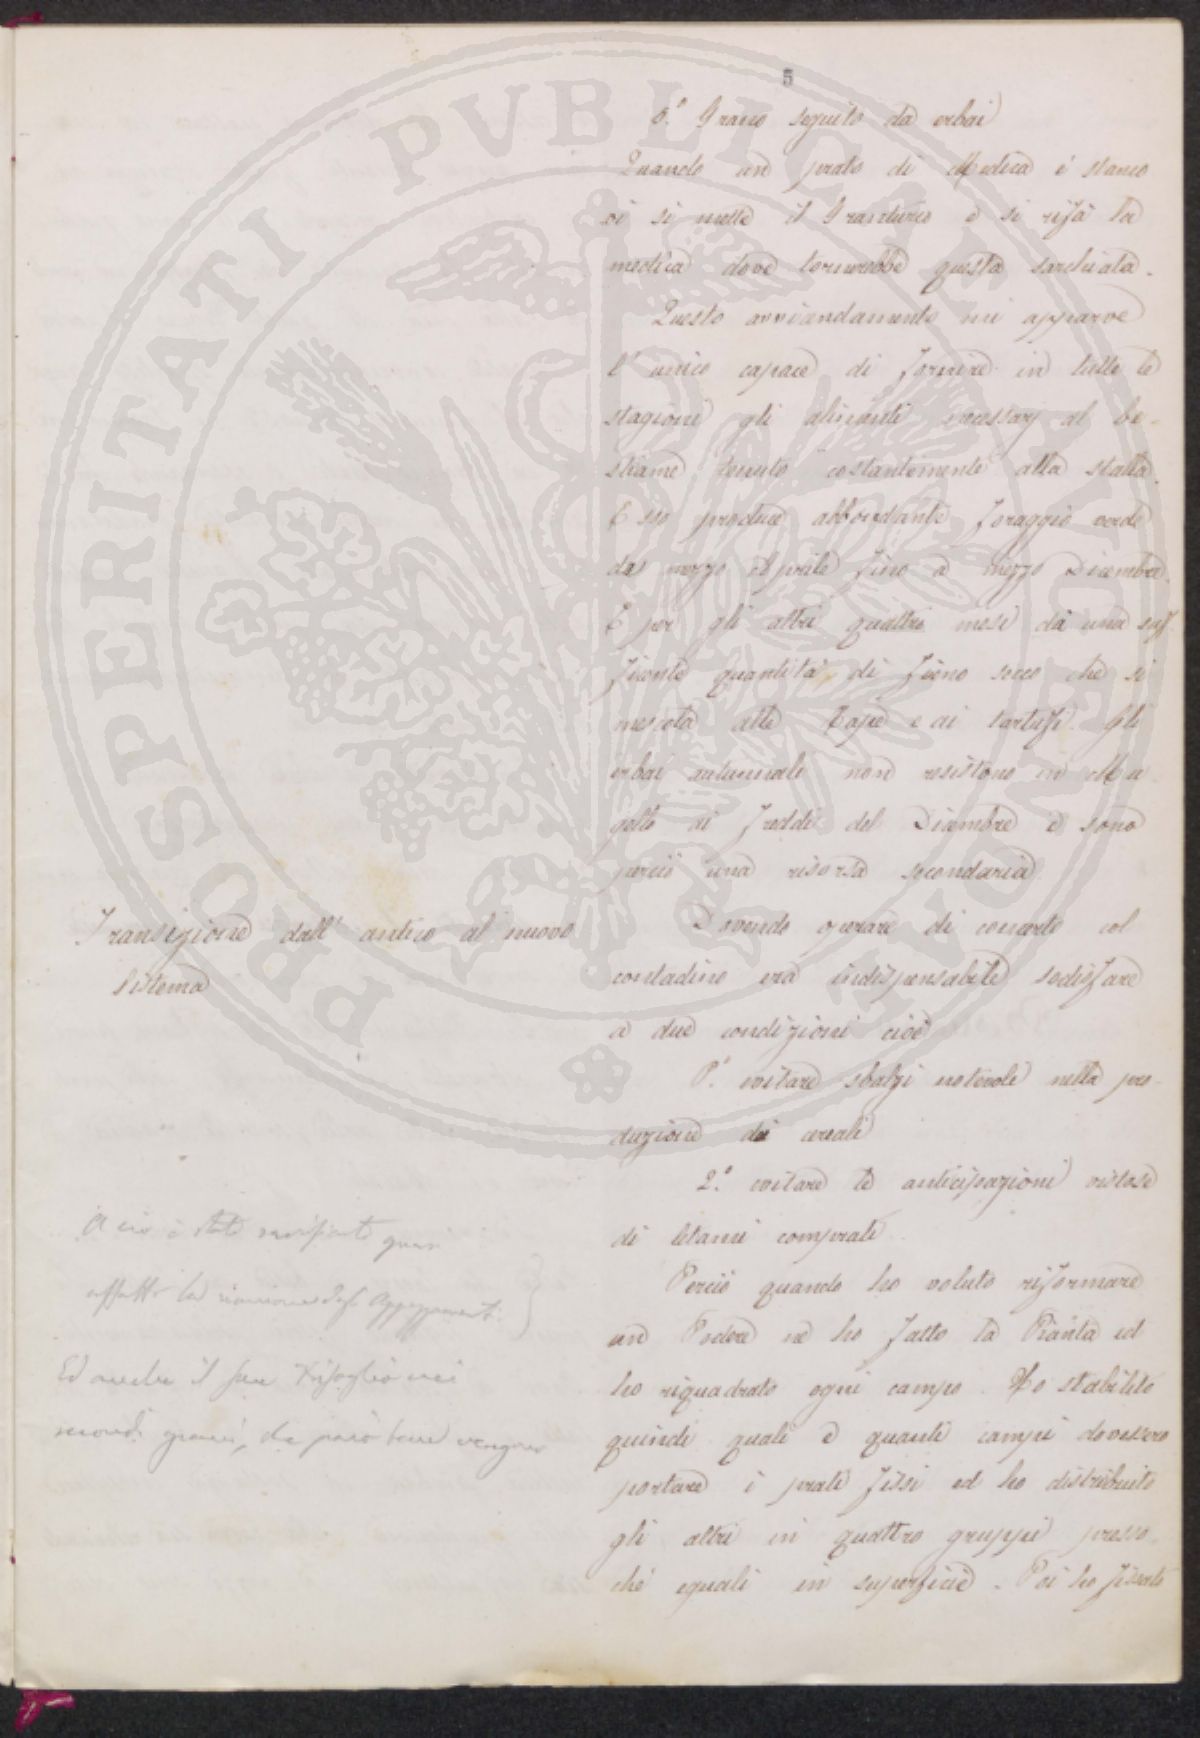 5
6.° Grano seguito da erbai
Quando un prato di Medica è stanco
vi si mette il Granturco e si rifà la
medica dove tornerebbe questa sarchiata.
Questo avvicendamento mi apparve
l' unico capace di fornire in tutte le
stagioni gli alimenti necessarj al be-
stiame tenuto costantemente alla stalla.
Esso produce abbondante foraggio verde
da mezzo Aprile fino a mezzo Dicembre.
E per gli altri quattro mesi dà una suf
ficiente quantità di fieno secco che si
mescola alle Rape e ai tartufi. Gli
erbai autunnali non resistono in Mu
gello ai freddi del Dicembre e sono
perciò una risorsa secondaria
Transizione dall' antico al nuovo
Sistema
Dovendo operare di concerto col
contadino era indispensabile sodisfare
a due condizioni cioè
1.° evitare sbalzi notevoli nella pro-
duzione dei cereali
2.° evitare le anticipazioni vistose
di letami comprati
A ciò è stato sufficiente quasi
affatto la riunione degli Appezzamenti.
Ed anche il seme Trifoglio nei
secondi grani, che però bene vengono
Perciò quando ho voluto riformare
un Podere ne ho fatto la Pianta ed
ho riquadrato ogni campo. Ho stabilito
quindi quali e quanti campi dovessero
portare i prati fissi ed ho distribuito
gli altri in quattro gruppi presso
chè eguali in superficie. Poi ho fissato
PROSPERITATI PUBLICAE AUGENDAE